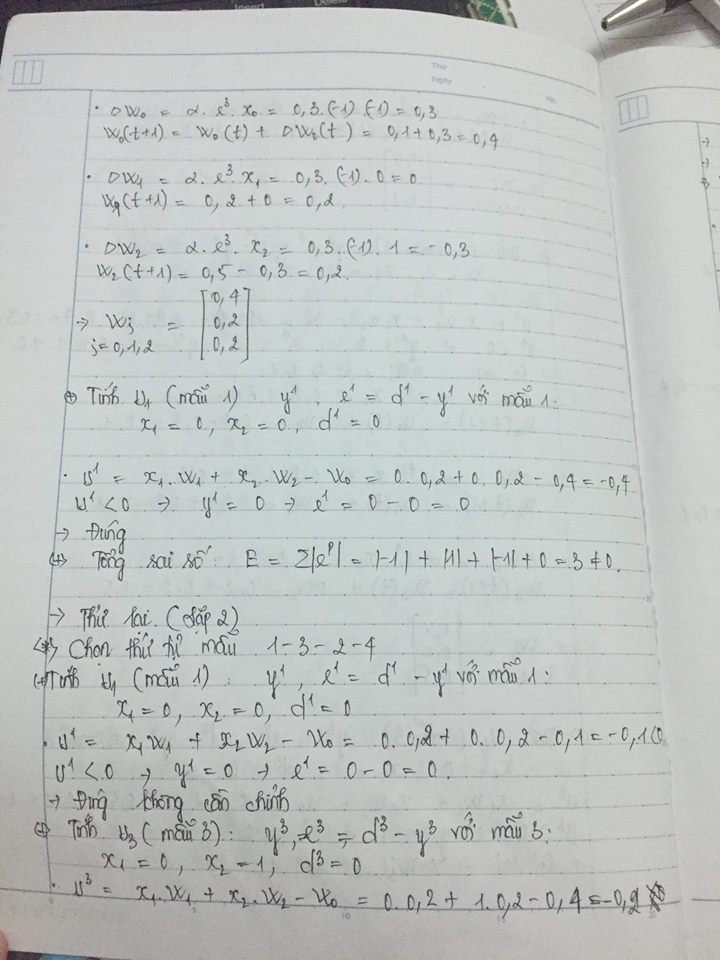 Insert
Delete
Thứ
Ngày
• DW₀ = α. e³. x₀ = 0,3. (-1) .(-1) = 0,3
W₀(t+1) = W₀(t) + DW₀(t) = 0,1 + 0,3 = 0,4
• DW₁ = α. e³. x₁ = 0,3. (-1). 0 = 0
W₁(t+1) = 0,2 + 0 = 0,2
• DW₂ = α. e³. x₂ = 0,3. (-1). 1 = -0,3
W₂(t+1) = 0,5 - 0,3 = 0,2.
→ Wj = [0,4
0,2
j=0,1,2 0,2]
⊕ Tính u₁ (mẫu 1) : y¹, e¹ = d¹ - y¹ với mẫu 1:
x₁ = 0, x₂ = 0, d¹ = 0
• u¹ = x₁. W₁ + x₂. W₂ - W₀ = 0. 0,2 + 0. 0,2 - 0,4 = -0,4
u¹ < 0 → y¹ = 0 → e¹ = 0 - 0 = 0
→ Đúng
(+) Tổng sai số: E = Σ|eᵖ| = |-1| + |1| + |-1| + 0 = 3 ≠ 0.
→ Thử lại. (lặp 2)
<*> Chọn thứ tự mẫu 1-3-2-4
(+) Tính u₁ (mẫu 1) : y¹, e¹ = d¹ - y¹ với mẫu 1:
x₁ = 0, x₂ = 0, d¹ = 0
• u¹ = x₁W₁ + x₂W₂ - W₀ = 0. 0,2 + 0. 0,2 - 0,1 = -0,1<0
u¹ < 0 → y¹ = 0 → e¹ = 0 - 0 = 0.
→ Đúng không cần chỉnh
⊕ Tính u₃ (mẫu 3): y³, e³ = d³ - y³ với mẫu 3:
x₁ = 0, x₂ = 1, d³ = 0
• u³ = x₁. W₁ + x₂. W₂ - W₀ = 0. 0,2 + 1. 0,2 - 0,4 = -0,2